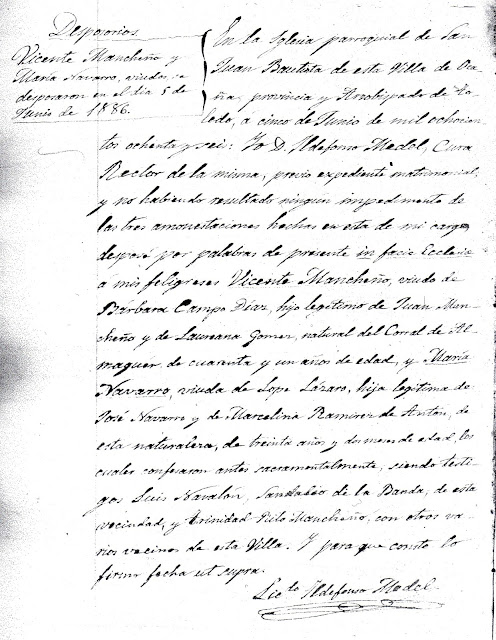 Desposorios
Vicente Mancheño y
María Navarro, viudos, se
desposaron en el día 5 de
Junio de 1886.
En la Iglesia parroquial de San
Juan Bautista de esta Villa de Oca-
ña, provincia y Arzobispado de To-
ledo, a cinco de Junio de mil ochocien-
tos ochenta y seis: Yo D. Ildefonso Medel, Cura
Rector de la misma, previo expediente matrimonial,
y no habiendo resultado ningún impedimento de
las tres amonestaciones hechas en esta de mi cargo,
desposé por palabras de presente in facie Ecclesie
a mis feligreses Vicente Mancheño, viudo de
Bárbara Campo Díaz, hijo legítimo de Juan Man-
cheño y de Laureana Gomez, natural del Corral de Al-
maguer de cuarenta y un años de edad, y María
Navarro, viuda de Lope Lázaro, hija legítima de
José Navarro y de Marcelina Ramirez de Antón, de
esta naturaleza, de treinta años y dos meses de edad, los
cuales confesaron antes sacramentalmente, siendo testi-
gos Luis Navalón, de la Banda, de esta
vecindad, y Trinidad Mancheño, con otros va-
rios vecinos de esta Villa. Y para que conste lo
firmo fecha ut supra.
Lic.do Ildefonso Medel